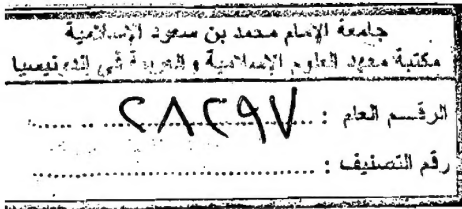 جامعة الإمام محمد بن سعود الإسلامية
مكتبة معهد العلوم الإسلامية و العربية في اندونيسيا
الرقم العام : ٢٨٢٩٧
رقم التصنيف :